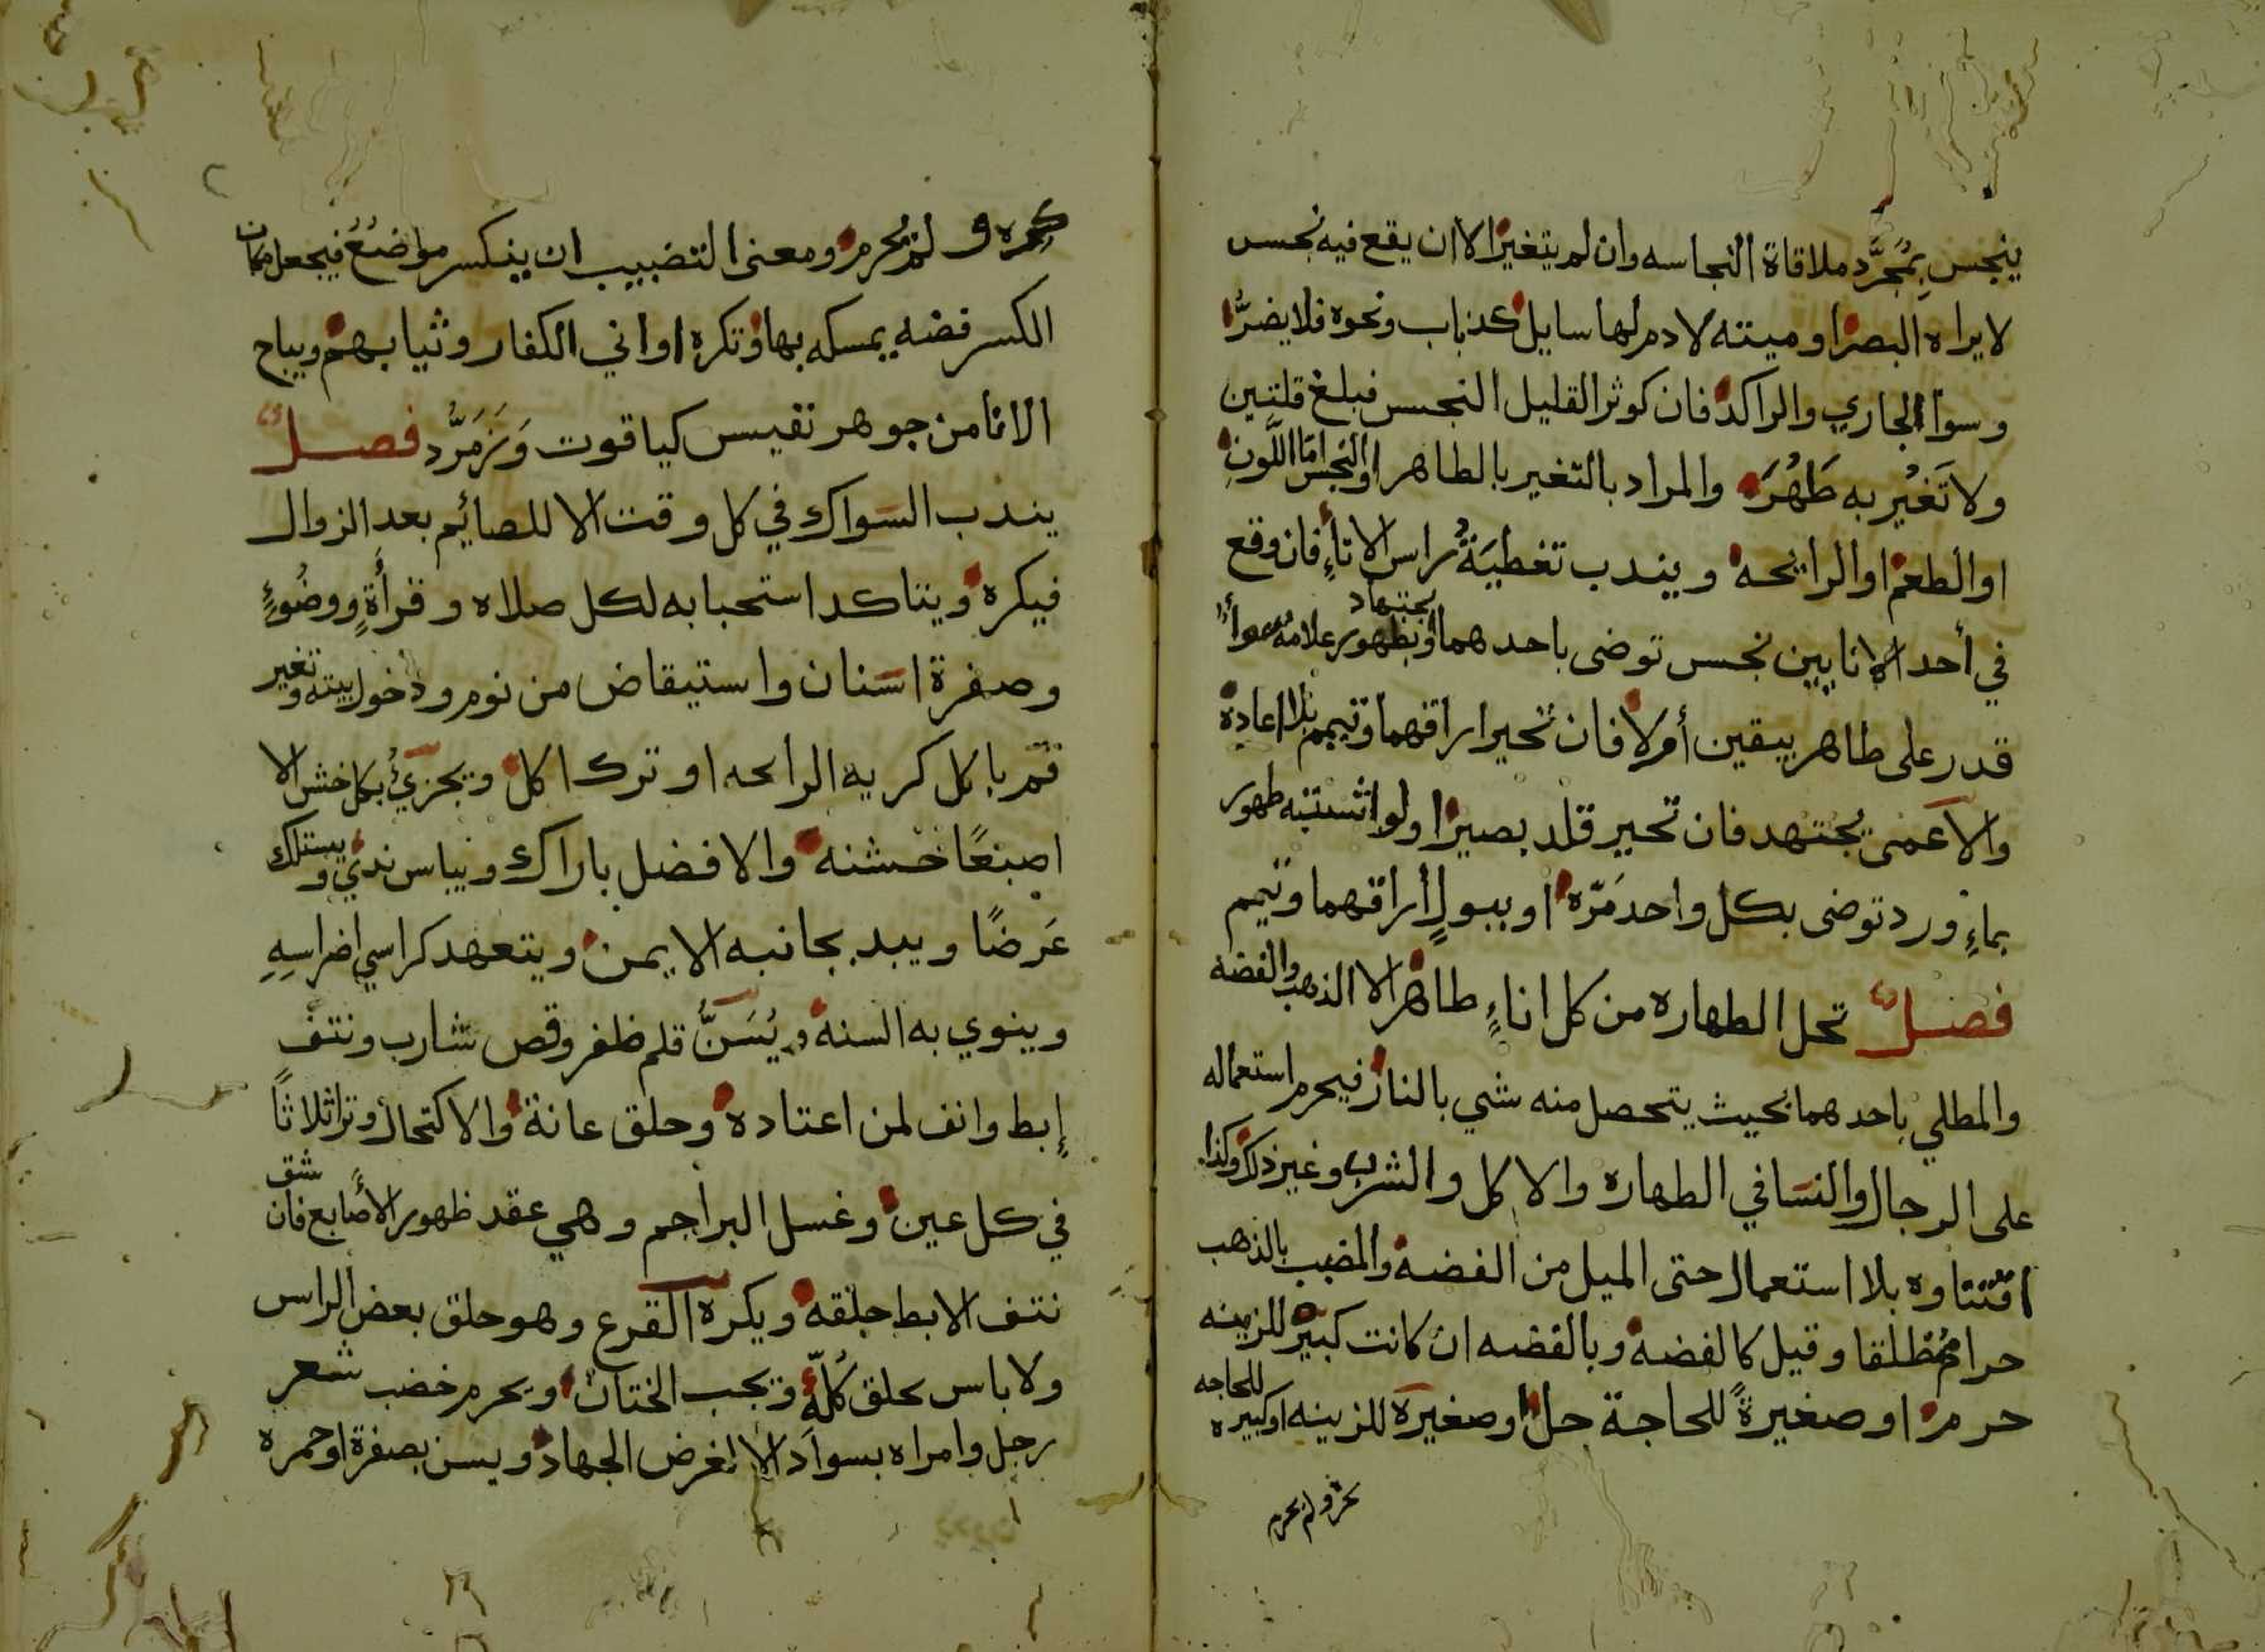 ينجس بِمُجَرَّد ملاقاة النجاسه وان لم يتغير الا ان يقع فيه نجس
لا يراه البصر او ميته لا دم لها سايل كذباب ونحوه فلا يضرُّ
وسوا الجاري والراكد فان كوثر القليل النجس فبلغ قلتين
ولا تَغَيُّر به طَهُرَ والمراد بالتغير بالطاهر او النجس امّا اللَّونِ
او الطعم او الرايحه ويندب تغطيَةُ راس الاناءِ فان وقع
في أحد الانايين نجس توضى باحدهما بجتهاد وبظهور علامةٍ سواءً
قدر على طاهر بيقين أم لا فان تحير اراقهما وتيمم بلا اعاده
والاعمى يجتهد فان تحير قلد بصيرا ولو اشتبه طهور
بماءِ ورد توضى بكل واحد مَرّه او ببولٍ أراقهما وتيمم
فصل تحل الطهاره من كل اناءٍ طاهر الا الذهب والفضه
والمطلي باحدهما بحيث يتحصل منه شي بالنار فيحرم استعماله
على الرجال والنسا في الطهاره والاكل والشرب وغير ذلك وكذا
اقتناوه بلا استعمال حتى الميل من الفضه والمضبب بالذهب
حرام مطلقا وقيل كالفضه وبالفضه ان كانت كبيرة للزينه
حرم او صغيرةً للحاجة حل او صغيرة للزينه او كبيره للحاجه
كره ولم يحرم
كره ولم يُحرم ومعنى التضبيب ان ينكسر موضعٌ فيجعل مكان
الكسر فضه يمسكه بها وتكره اواني الكفار وثيابهم ويباح
الانا من جوهر نفيس كياقوت وَزمَرُّد فصل
يندب السواك في كل وقت الا للصائيم بعد الزوال
فيكره ويتاكد استحبابه لكل صلاه وقرأةٍ ووضُوءٍ
وصفرة اسنان واستيقاض من نوم ودخول بيته وتغير
فم باكل كريه الرايحه او ترك اكل ويجزيُ بكل خشن الا
اصبعًا خشنه والافضل باراك وبيابس نديٍّ ويستاك
عَرضًا ويبد بجانبه الايمن ويتعهد كراسي اضراسِهِ
وينوي به السنه ويُسَنُّ قلم ظفر وقص شارب ونتف
إبط وانف لمن اعتاده وحلق عانة والاكتحال وترا ثلاثاً
في كل عين وغسل البراجم وهي عقد ظهور الأصابع فان شق
نتف الابط حلقه ويكره القزع وهو حلق بعض الراس
ولا باس بحلق كُلّهِ ويجب الختان ويحرم خضب شعر
رجل وامراه بسواد الا لغرض الجهاد ويسن بصفرة او حمره